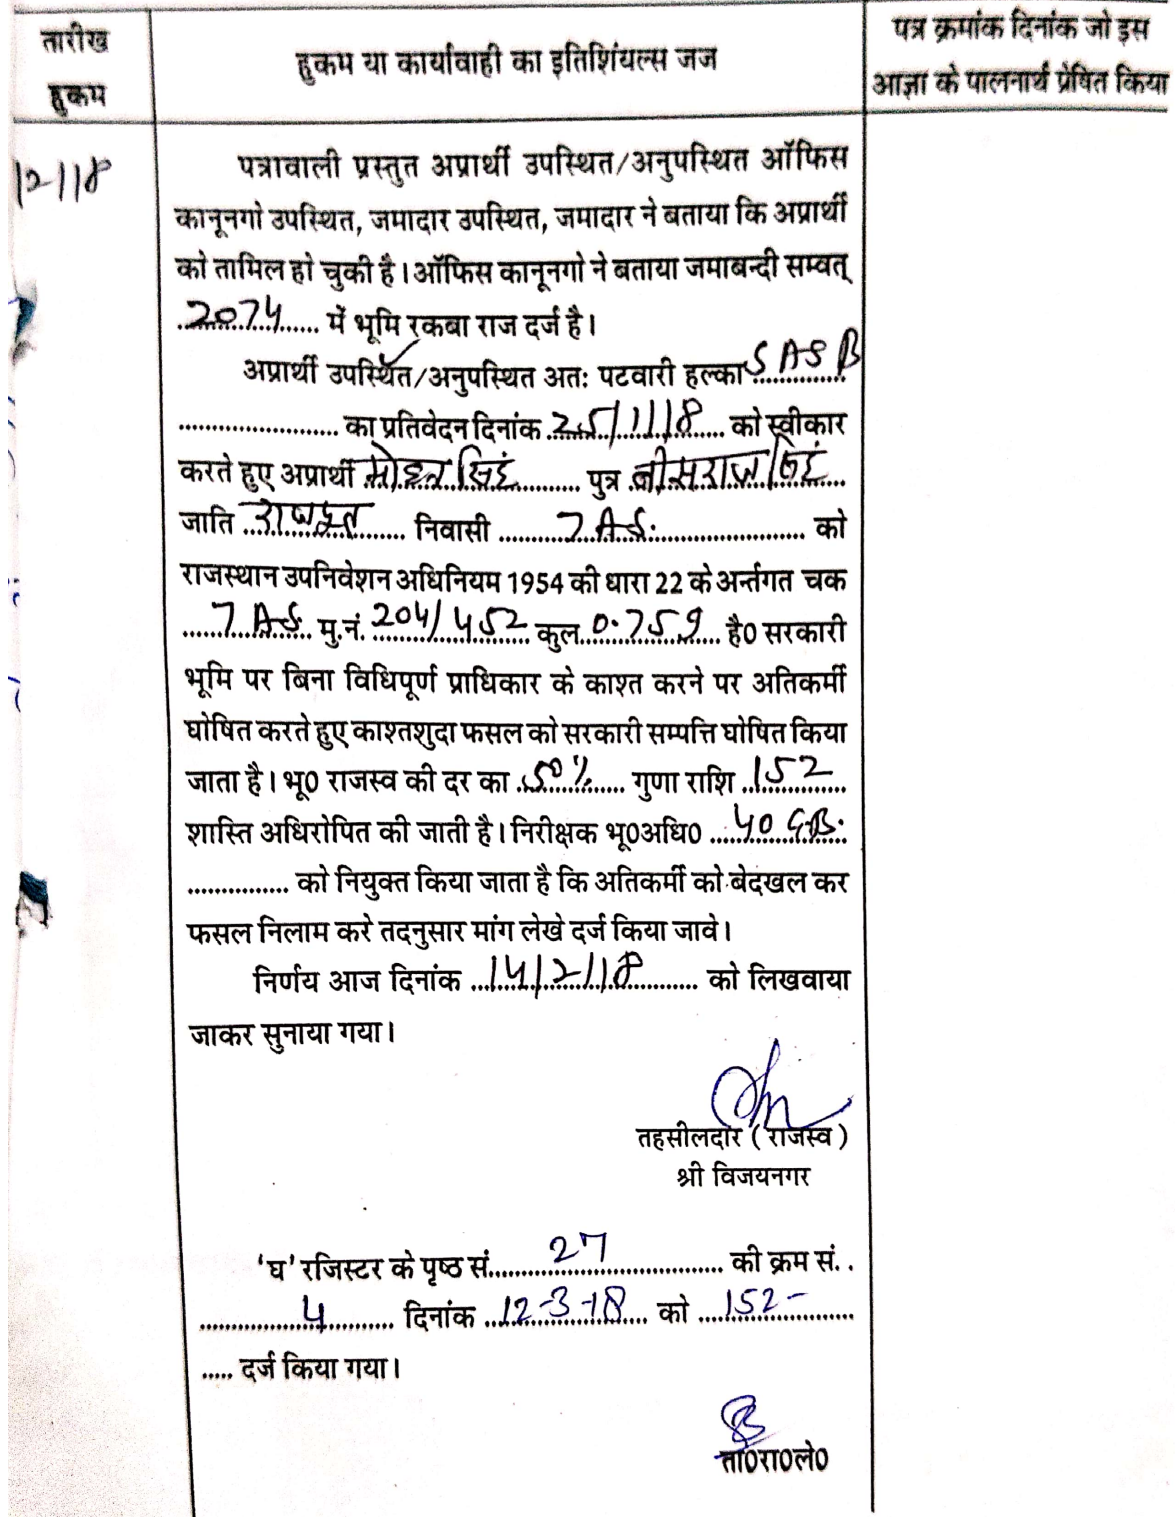 तारीख
हुकम
हुकम या कार्यवाही का इतिशिंयल्स जज
पत्र क्रमांक दिनांक जो इस
आज्ञा के पालनार्थ प्रेषित किया
12-118
पत्रावाली प्रस्तुत अप्रार्थी उपस्थित/अनुपस्थित ऑफिस
कानूनगो उपस्थित, जमादार उपस्थित, जमादार ने बताया कि अप्रार्थी
को तामिल हो चुकी है। ऑफिस कानूनगो ने बताया जमाबन्दी सम्वत्
2074 में भूमि रकबा राज दर्ज है।
अप्रार्थी उपस्थित/अनुपस्थित अतः पटवारी हल्का
का प्रतिवेदन दिनांक 25/1/18 को स्वीकार
करते हुए अप्रार्थी मोहन सिंह पुत्र
जाति राजपूत निवासी 7 A.S. को
राजस्थान उपनिवेशन अधिनियम 1954 की धारा 22 के अर्न्तगत चक
7 A.S. मु.नं. 204/452 कुल 0.759 है0 सरकारी
भूमि पर बिना विधिपूर्ण प्राधिकार के काश्त करने पर अतिकर्मी
घोषित करते हुए काश्तशुदा फसल को सरकारी सम्पत्ति घोषित किया
जाता है। भू0 राजस्व की दर का 50% गुणा राशि 152
शास्ति अधिरोपित की जाती है। निरीक्षक भू0अधि0 40 G.B.
को नियुक्त किया जाता है कि अतिकर्मी को बेदखल कर
फसल निलाम करे तदनुसार मांग लेखे दर्ज किया जावे।
निर्णय आज दिनांक 14/2/18 को लिखवाया
जाकर सुनाया गया।
तहसीलदार (राजस्व)
श्री विजयनगर
'घ' रजिस्टर के पृष्ठ सं. 27 की क्रम सं.
4 दिनांक 12-3-18 को 152-
दर्ज किया गया।
ता0रा0ले0